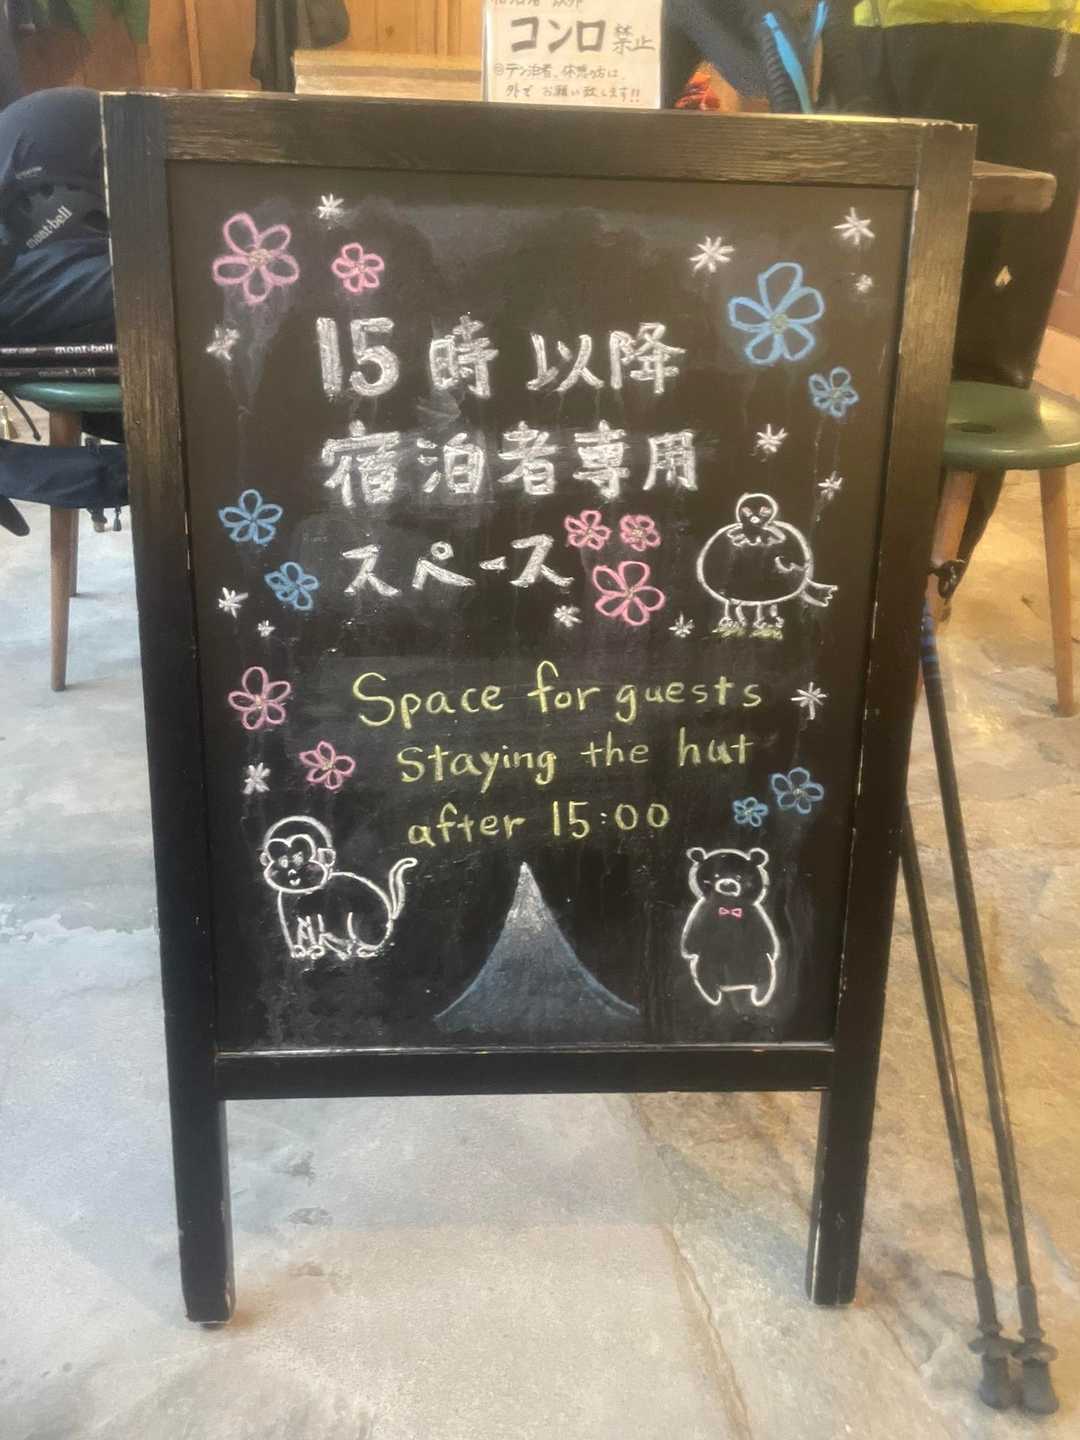 コンロ禁止
◎テン泊者、休憩の方は、
外で お願い致します!!
mont-bell
mont-bell
mont-bell
15時以降
宿泊者専用
スペース
Space for guests
staying the hut
after 15:00